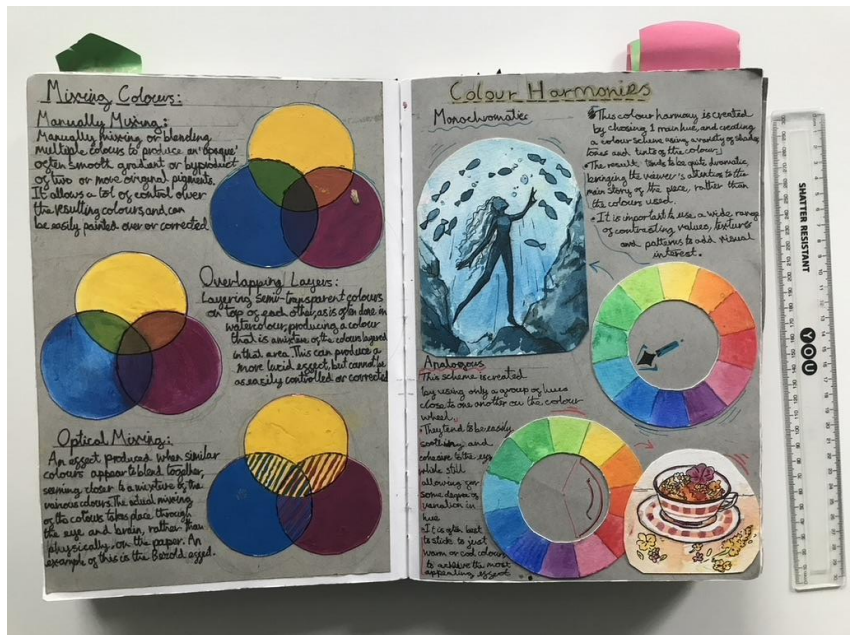 Mixing Colours:
Manually Mixing:
Manually mixing or blending
multiple colours to produce an 'opaque'
often smooth gradient or byproduct
of two or more original pigments.
It allows a lot of control over
the resulting colours and can
be easily painted over or corrected
Overlapping Layers:
Layering semi-transparent colours
on top of each other, as is often done in
watercolour, producing a colour
that is a mixture of the colours layered
in that area. This can produce a
more lucid effect, but cannot be
as easily controlled or corrected
Optical Mixing:
An effect produced when similar
colours appear to blend together,
seeming closer to a mixture of the
various colours. The actual mixing
of the colours takes place through
the eye and brain, rather than
physically, on the paper. An
example of this is the Bezold effect.
Colour Harmonies
Monochromatic
This colour harmony is created
by chosing 1 main hue, and creating
a colour scheme using a variety of shades
tones and tints of the colour.
The result tends to be quite dramatic,
bringing the viewer's attention to the
main story of the piece, rather than
the colours used.
It is important to use a wide range
of contrasting values, textures
and patterns to add visual
interest.
Analogous
This scheme is created
by using only a group of hues
close to one another on the colour
wheel.
They tend to be easily
soothing and
cohesive to the eye
while still
allowing for
some degree of
variation in
hue
It is often best
to stick to just
warm or cool colours
to achieve the most
appealing effect
SHATTER RESISTANT
YOU